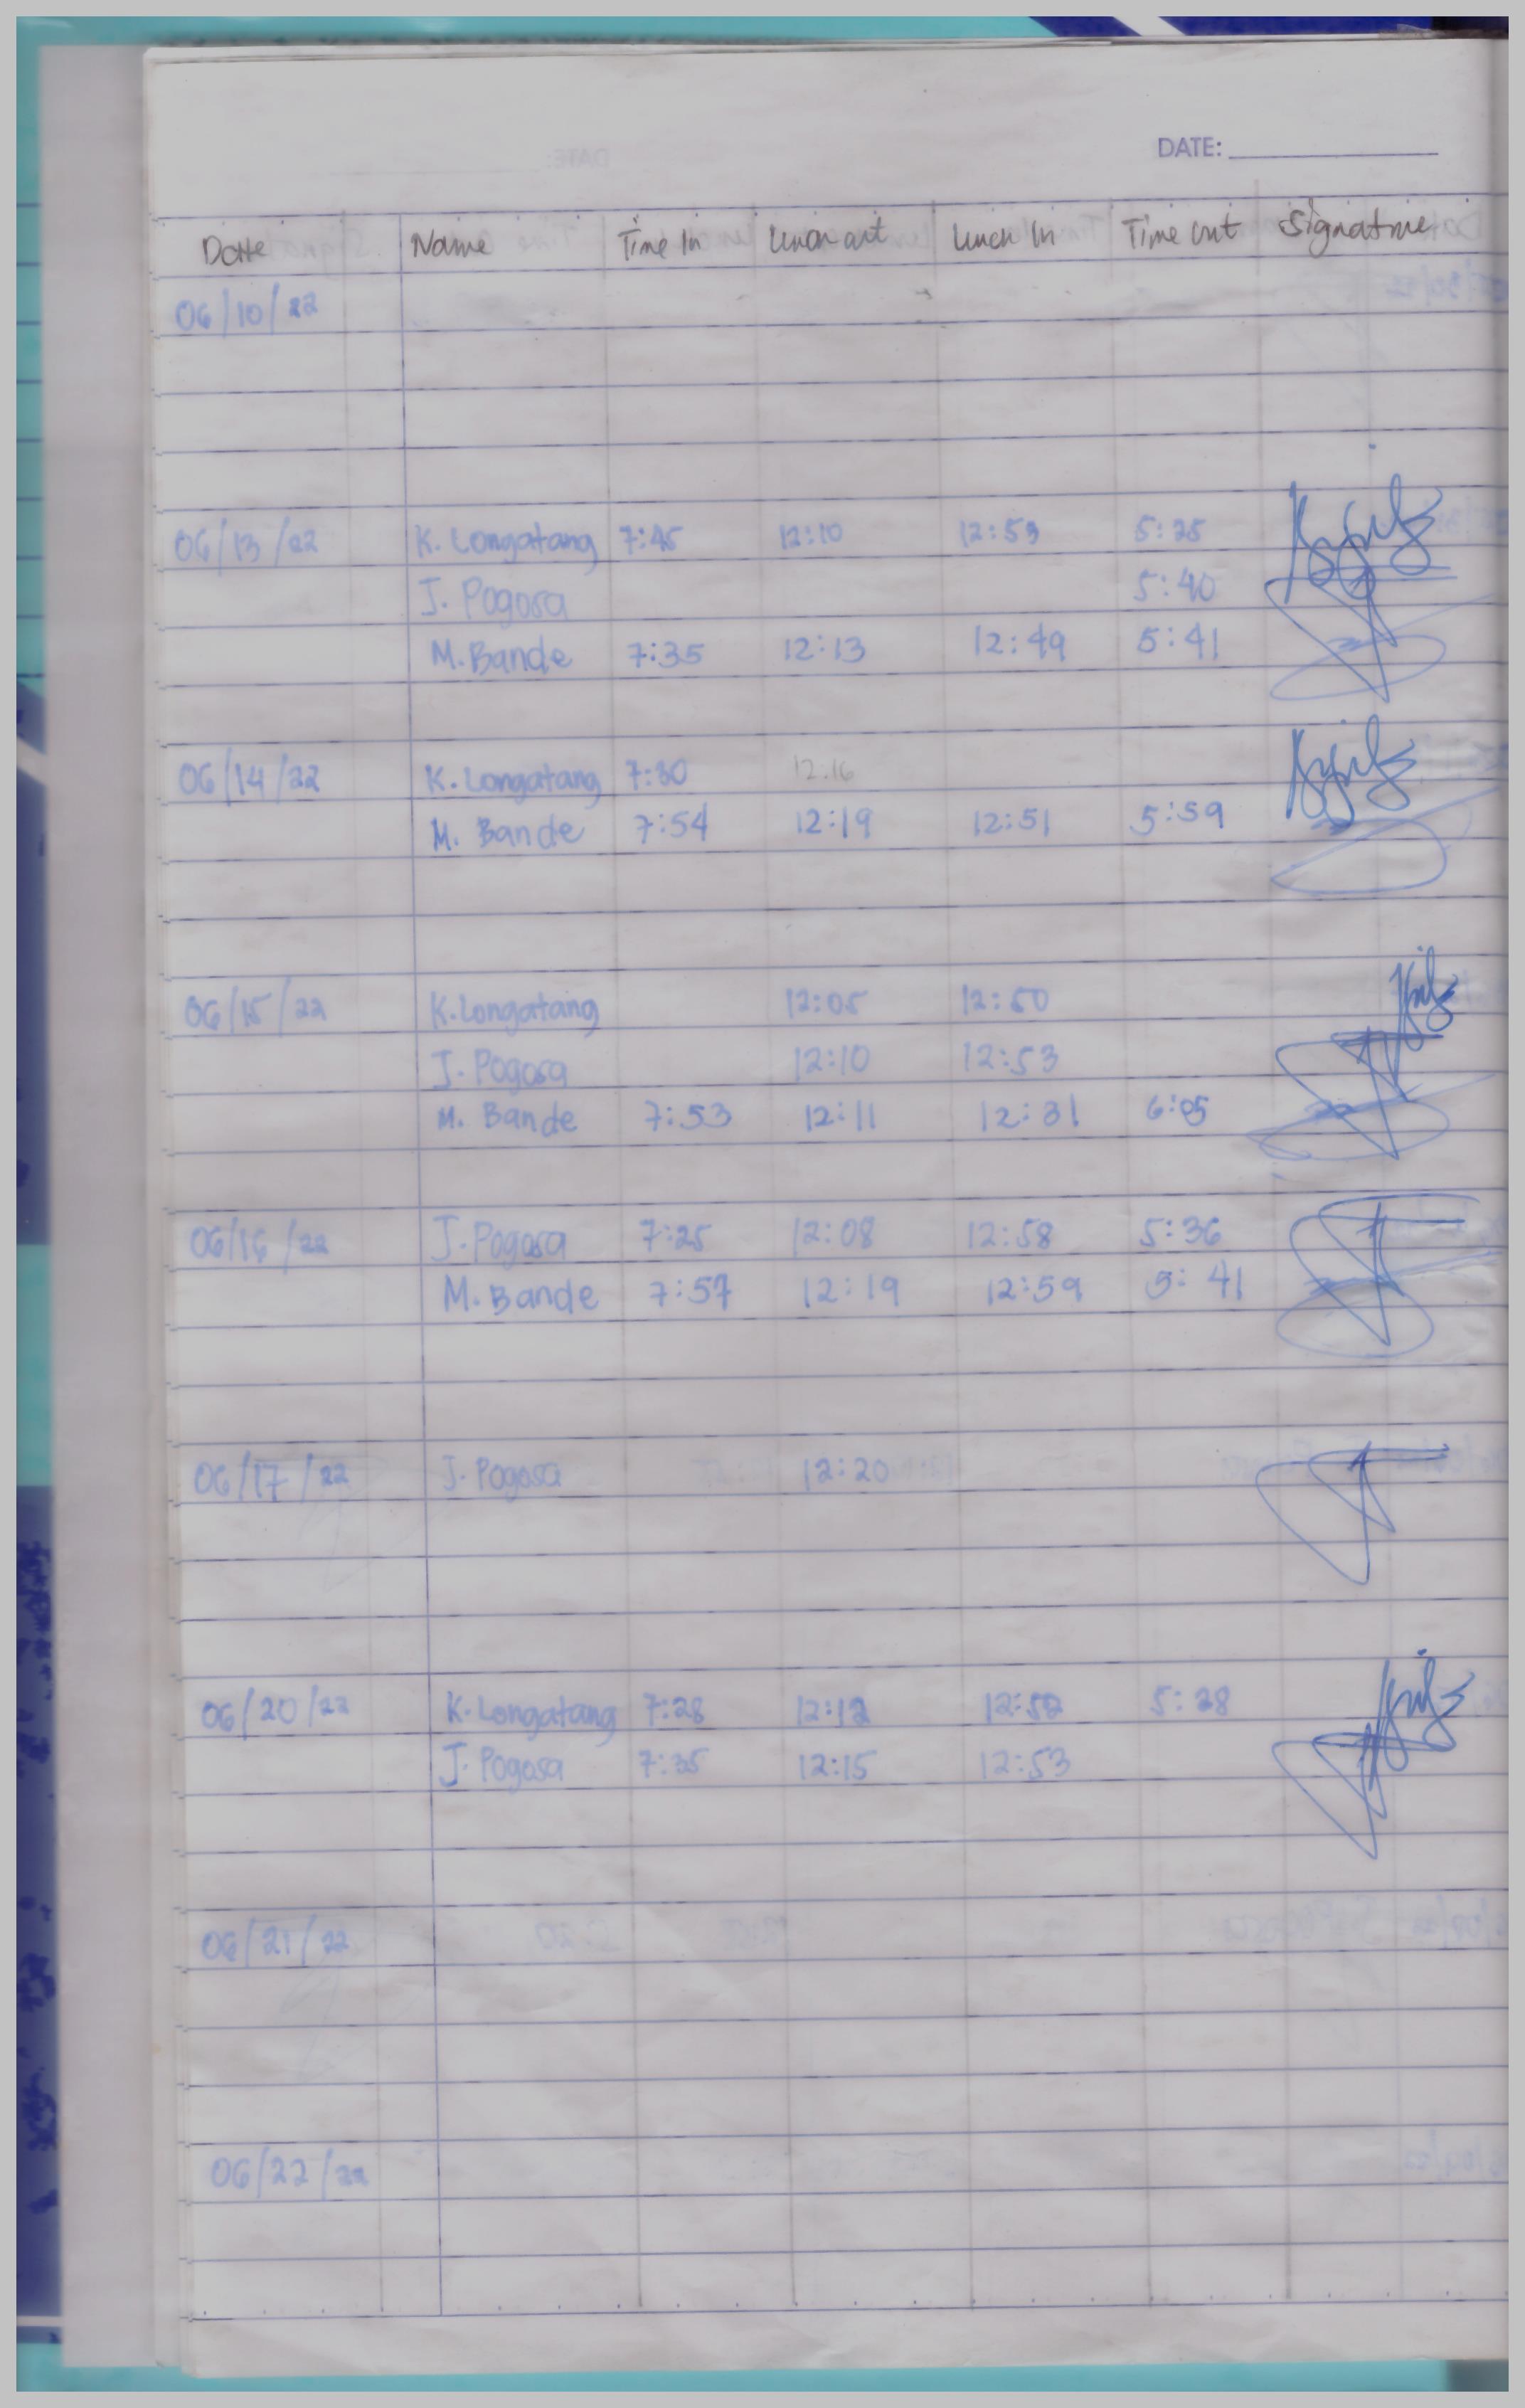 DATE:
Date Name Time In Lunch out Lunch In Time out Signature
06/10/22
06/13/22 K. Longatang 7:45 12:10 12:53 5:25
J. Pogosa 5:40
M. Bande 7:35 12:13 12:49 5:41
06/14/22 K. Longatang 7:30 12:16
M. Bande 7:54 12:19 12:51 5:59
06/15/22 K. Longatang 12:05 12:50
J. Pogosa 12:10 12:53
M. Bande 7:53 12:11 12:31 6:05
06/16/22 J. Pogosa 7:25 12:08 12:58 5:36
M. Bande 7:57 12:19 12:59 5:41
06/17/22 J. Pogosa 12:20
06/20/22 K. Longatang 7:28 12:12 12:52 5:28
J. Pogosa 7:35 12:15 12:53
06/21/22
06/22/22